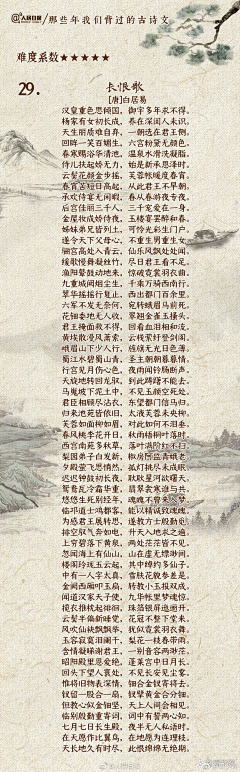 人民日报 / 那些年我们背过的古诗文
难度系数★★★★★
29.
长恨歌
[唐]白居易
汉皇重色思倾国，御宇多年求不得。
杨家有女初长成，养在深闺人未识。
天生丽质难自弃，一朝选在君王侧。
回眸一笑百媚生，六宫粉黛无颜色。
春寒赐浴华清池，温泉水滑洗凝脂。
侍儿扶起娇无力，始是新承恩泽时。
云鬓花颜金步摇，芙蓉帐暖度春宵。
春宵苦短日高起，从此君王不早朝。
承欢侍宴无闲暇，春从春游夜专夜。
后宫佳丽三千人，三千宠爱在一身。
金屋妆成娇侍夜，玉楼宴罢醉和春。
姊妹弟兄皆列土，可怜光彩生门户。
遂令天下父母心，不重生男重生女。
骊宫高处入青云，仙乐风飘处处闻。
缓歌慢舞凝丝竹，尽日君王看不足。
渔阳鼙鼓动地来，惊破霓裳羽衣曲。
九重城阙烟尘生，千乘万骑西南行。
翠华摇摇行复止，西出都门百余里。
六军不发无奈何，宛转蛾眉马前死。
花钿委地无人收，翠翘金雀玉搔头。
君王掩面救不得，回看血泪相和流。
黄埃散漫风萧索，云栈萦纡登剑阁。
峨嵋山下少人行，旌旗无光日色薄。
蜀江水碧蜀山青，圣主朝朝暮暮情。
行宫见月伤心色，夜雨闻铃肠断声。
天旋地转回龙驭，到此踌躇不能去。
马嵬坡下泥土中，不见玉颜空死处。
君臣相顾尽沾衣，东望都门信马归。
归来池苑皆依旧，太液芙蓉未央柳。
芙蓉如面柳如眉，对此如何不泪垂。
春风桃李花开日，秋雨梧桐叶落时。
西宫南苑多秋草，落叶满阶红不扫。
梨园弟子白发新，椒房阿监青娥老。
夕殿萤飞思悄然，孤灯挑尽未成眠。
迟迟钟鼓初长夜，耿耿星河欲曙天。
鸳鸯瓦冷霜华重，翡翠衾寒谁与共。
悠悠生死别经年，魂魄不曾来入梦。
临邛道士鸿都客，能以精诚致魂魄。
为感君王展转思，遂教方士殷勤觅。
排空驭气奔如电，升天入地求之遍。
上穷碧落下黄泉，两处茫茫皆不见。
忽闻海上有仙山，山在虚无缥渺间。
楼阁玲珑五云起，其中绰约多仙子。
中有一人字太真，雪肤花貌参差是。
金阙西厢叩玉扃，转教小玉报双成。
闻道汉家天子使，九华帐里梦魂惊。
揽衣推枕起徘徊，珠箔银屏迤逦开。
云鬓半偏新睡觉，花冠不整下堂来。
风吹仙袂飘飘举，犹似霓裳羽衣舞。
玉容寂寞泪阑干，梨花一枝春带雨。
含情凝睇谢君王，一别音容两渺茫。
昭阳殿里恩爱绝，蓬莱宫中日月长。
回头下望人寰处，不见长安见尘雾。
惟将旧物表深情，钿合金钗寄将去。
钗留一股合一扇，钗擘黄金合分钿。
但教心似金钿坚，天上人间会相见。
临别殷勤重寄词，词中有誓两心知。
七月七日长生殿，夜半无人私语时。
在天愿作比翼鸟，在地愿为连理枝。
天长地久有时尽，此恨绵绵无绝期。